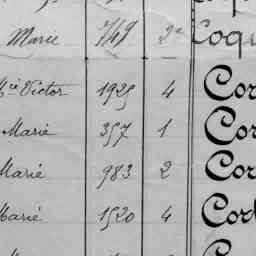 Marie 749 2e Coqu
Victor 1925 4 Cor
Marié 357 1 Cor
Marié 983 2 Cor
Marié 1520 4 Corb